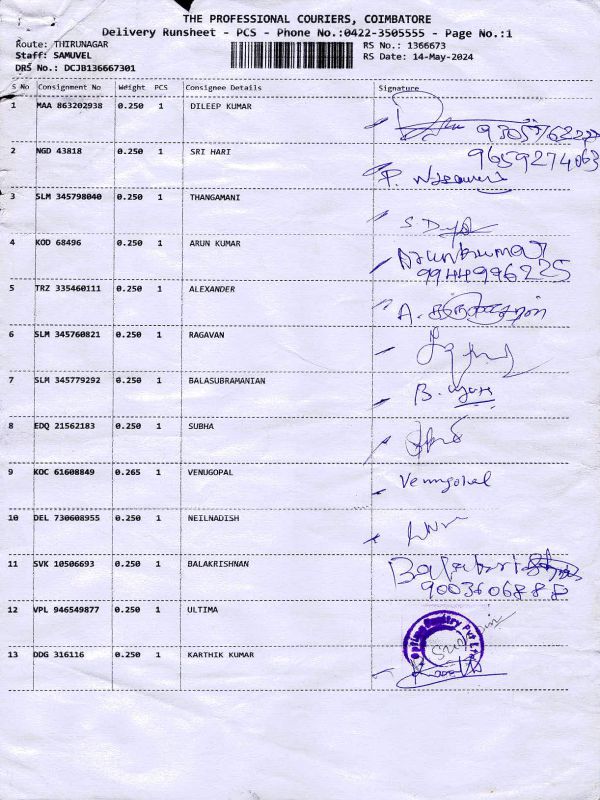 THE PROFESSIONAL COURIERS, COIMBATORE
Delivery Runsheet - PCS - Phone No.:0422-3505555 - Page No.:1
Route: THIRUNAGAR RS No.: 1366673
Staff: SAMUVEL RS Date: 14-May-2024
DRS No.: DCJB136667301
S No Consignment No Weight PCS Consignee Details Signature
1 MAA 863202938 0.250 1 DILEEP KUMAR
2 NGD 43818 0.250 1 SRI HARI 9659274063
P.
3 SLM 345798040 0.250 1 THANGAMANI
S
4 KOD 68496 0.250 1 ARUN KUMAR Arunkumar
9944996225
5 TRZ 335460111 0.250 1 ALEXANDER
A.
6 SLM 345760821 0.250 1 RAGAVAN
7 SLM 345779292 0.250 1 BALASUBRAMANIAN
B.
8 EDQ 21562183 0.250 1 SUBHA
9 KOC 61608849 0.265 1 VENUGOPAL Venugopal
10 DEL 730608955 0.250 1 NEILNADISH
11 SVK 10506693 0.250 1 BALAKRISHNAN
9003606888
12 VPL 946549877 0.250 1 ULTIMA
Pvt Ltd
13 DDG 316116 0.250 1 KARTHIK KUMAR